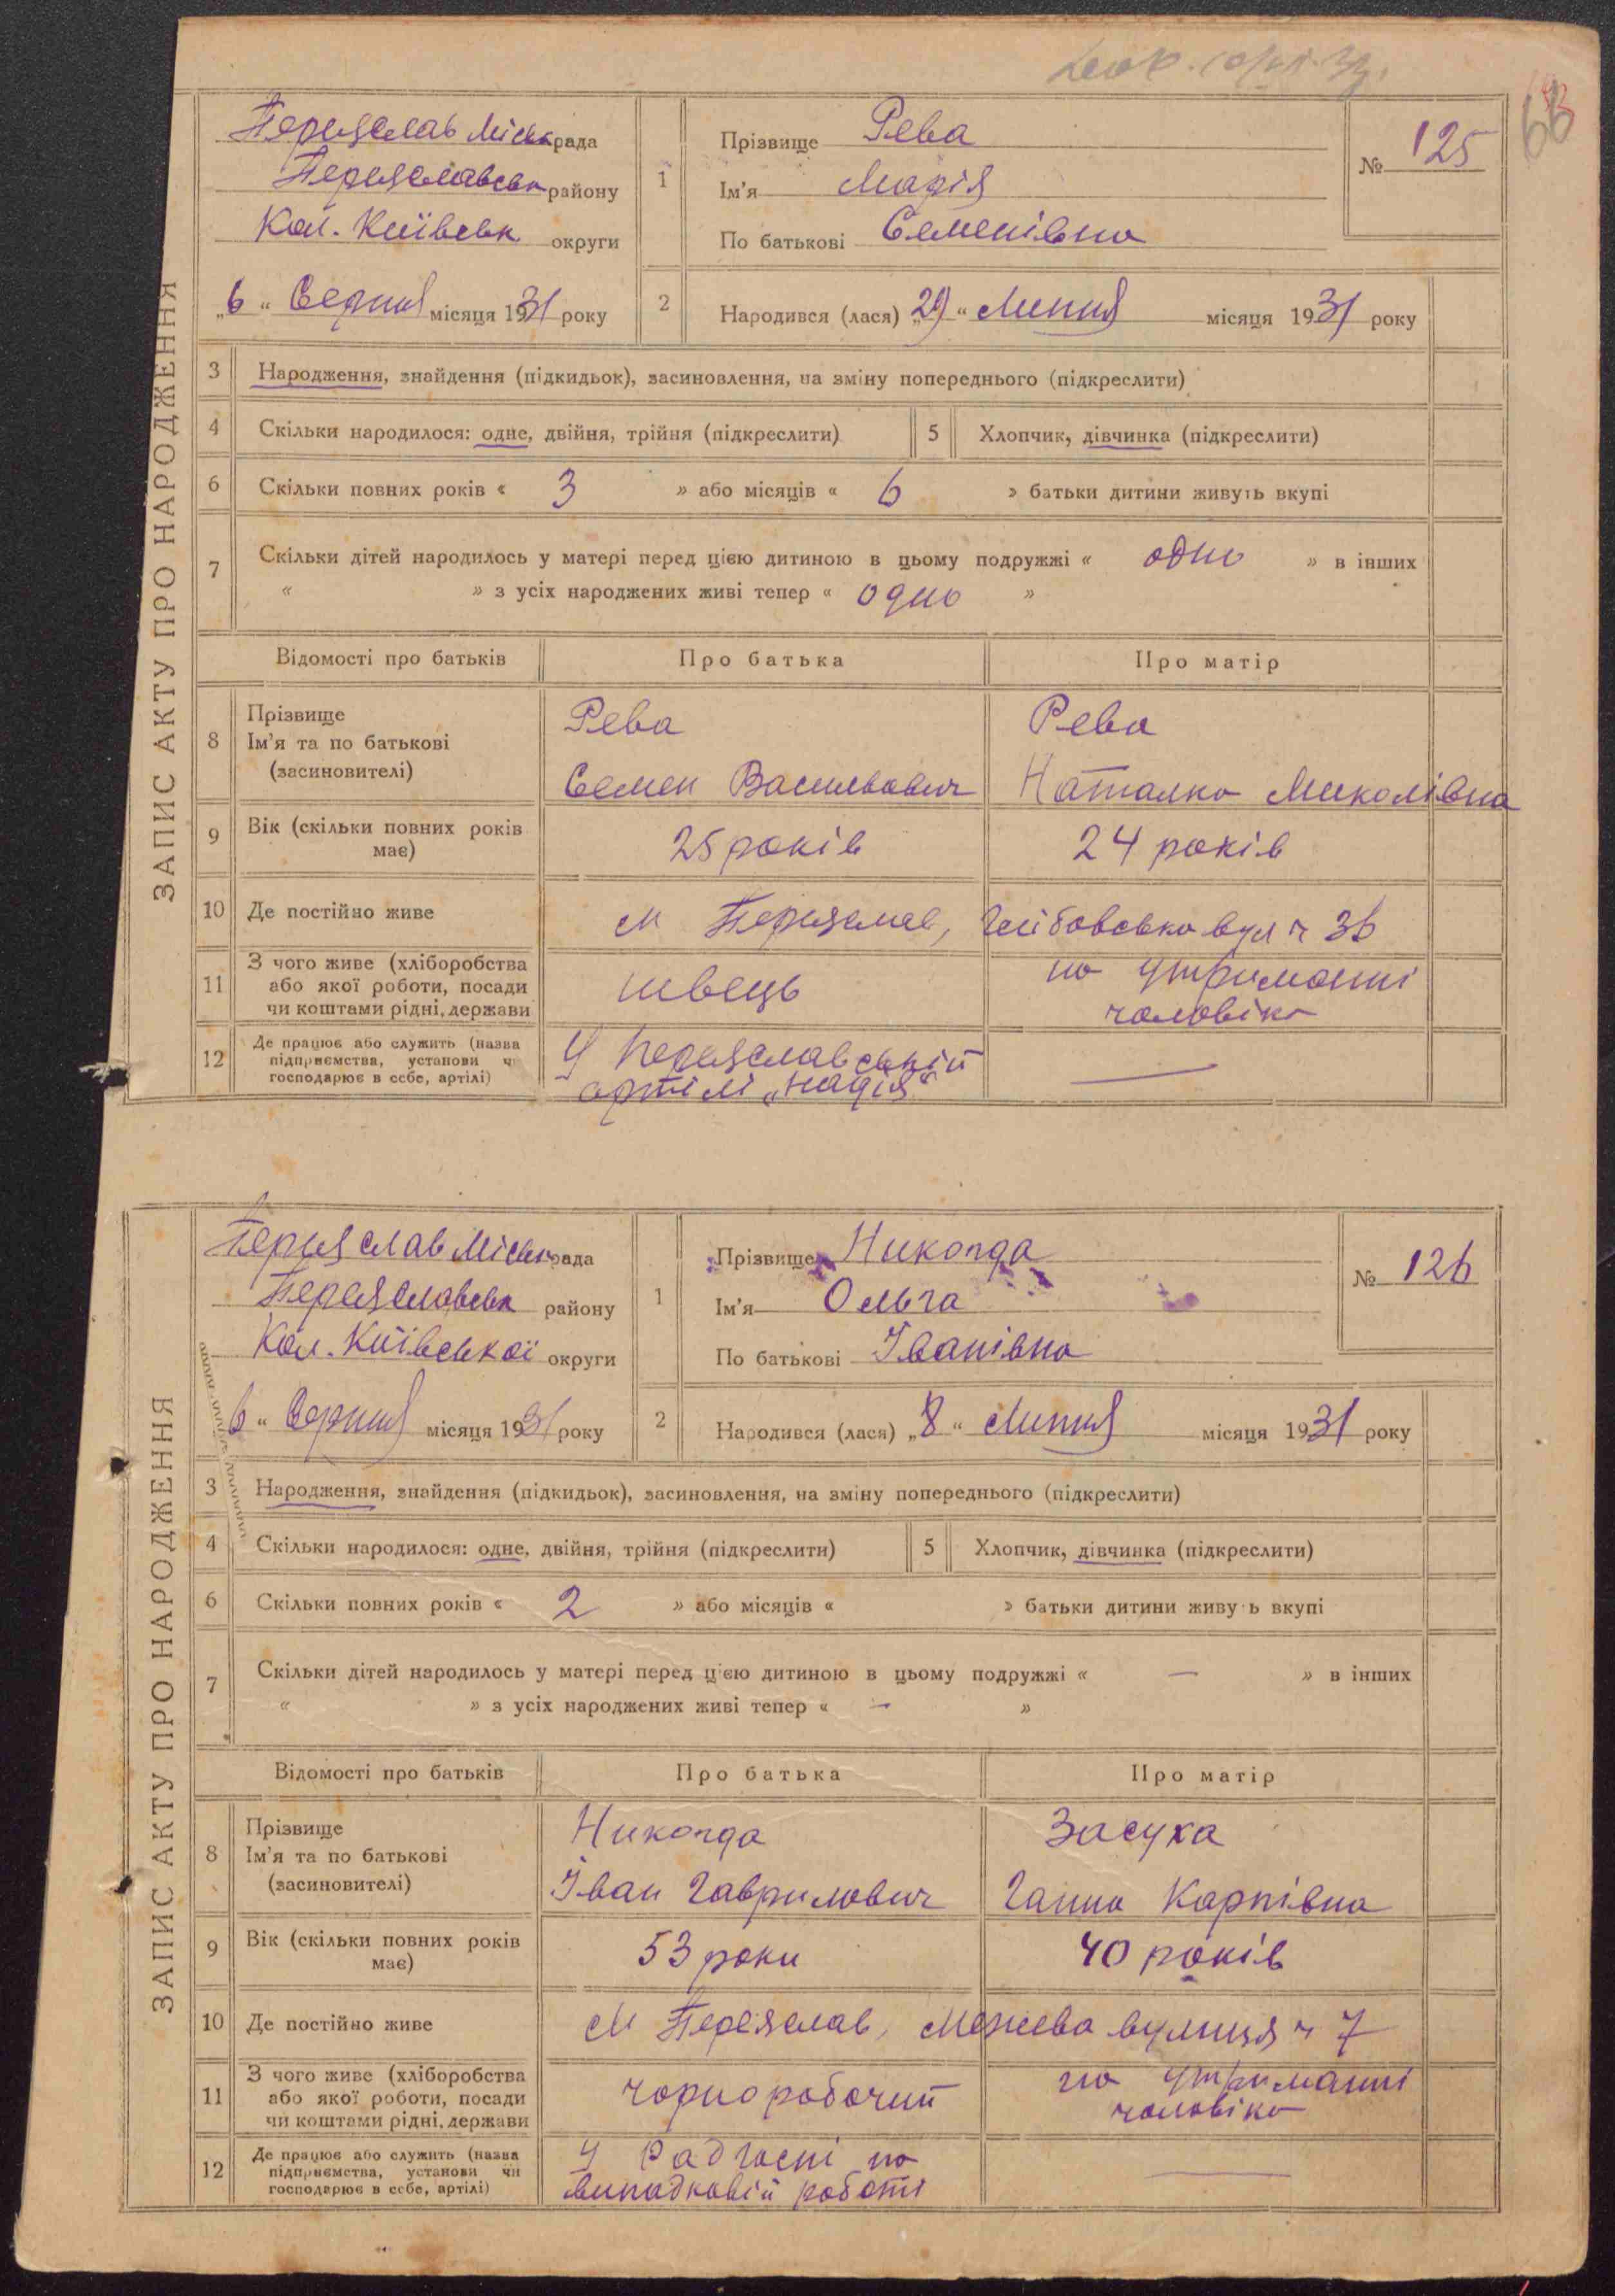 63
66
ЗАПИС АКТУ ПРО НАРОДЖЕННЯ
Переяслав Міськрада
Переяславськ району
Кол. Київськ округи
„6“ Серпня місяця 1931 року
1
Прізвище Рева
Ім'я Марія
По батькові Семенівна
№ 125
2
Народився (лася) „29“ Липня місяця 1931 року
3 Народження, знайдення (підкидьок), засиновлення, на зміну попереднього (підкреслити)
4 Скільки народилося: одне, двійня, трійня (підкреслити) 5 Хлопчик, дівчинка (підкреслити)
6 Скільки повних років « 3 » або місяців « 6 » батьки дитини живуть вкупі
7 Скільки дітей народилось у матері перед цією дитиною в цьому подружжі « одно » в інших
« » з усіх народжених живі тепер « одно »
Відомості про батьків Про батька Про матір
8 Прізвище
Ім'я та по батькові
(засиновителі)
Рева
Семен Васильович
Рева
Наталка Миколівна
9 Вік (скільки повних років
має)
25 років
24 років
10 Де постійно живе
м Переяслав, вул ч 36
11 З чого живе (хліборобства
або якої роботи, посади
чи коштами рідні, держави
швець
на утриманні
чоловіка
12 Де працює або служить (назва
підприємства, установи чи
господарює в себе, артілі)
У Переяславській
артілі „Надія“
—
ЗАПИС АКТУ ПРО НАРОДЖЕННЯ
Переяслав Міськрада
Переяславськ району
Кол. Київської округи
6“ Серпня місяця 1931 року
1
Прізвище Никогда
Ім'я Ольга
По батькові Іванівна
№ 126
2
Народився (лася) „8“ Липня місяця 1931 року
3 Народження, знайдення (підкидьок), засиновлення, на зміну попереднього (підкреслити)
4 Скільки народилося: одне, двійня, трійня (підкреслити) 5 Хлопчик, дівчинка (підкреслити)
6 Скільки повних років « 2 » або місяців « » батьки дитини живуть вкупі
7 Скільки дітей народилось у матері перед цією дитиною в цьому подружжі « — » в інших
« » з усіх народжених живі тепер « — »
Відомості про батьків Про батька Про матір
8 Прізвище
Ім'я та по батькові
(засиновителі)
Никогда
Іван Гаврилович
Засуха
Ганна Карпівна
9 Вік (скільки повних років
має)
53 роки
40 років
10 Де постійно живе
м Переяслав, Межева вулиця ч 7
11 З чого живе (хліборобства
або якої роботи, посади
чи коштами рідні, держави
чорноробочий
на утриманні
чоловіка
12 Де працює або служить (назва
підприємства, установи чи
господарює в себе, артілі)
У Радгоспі на
випадковій роботі
—